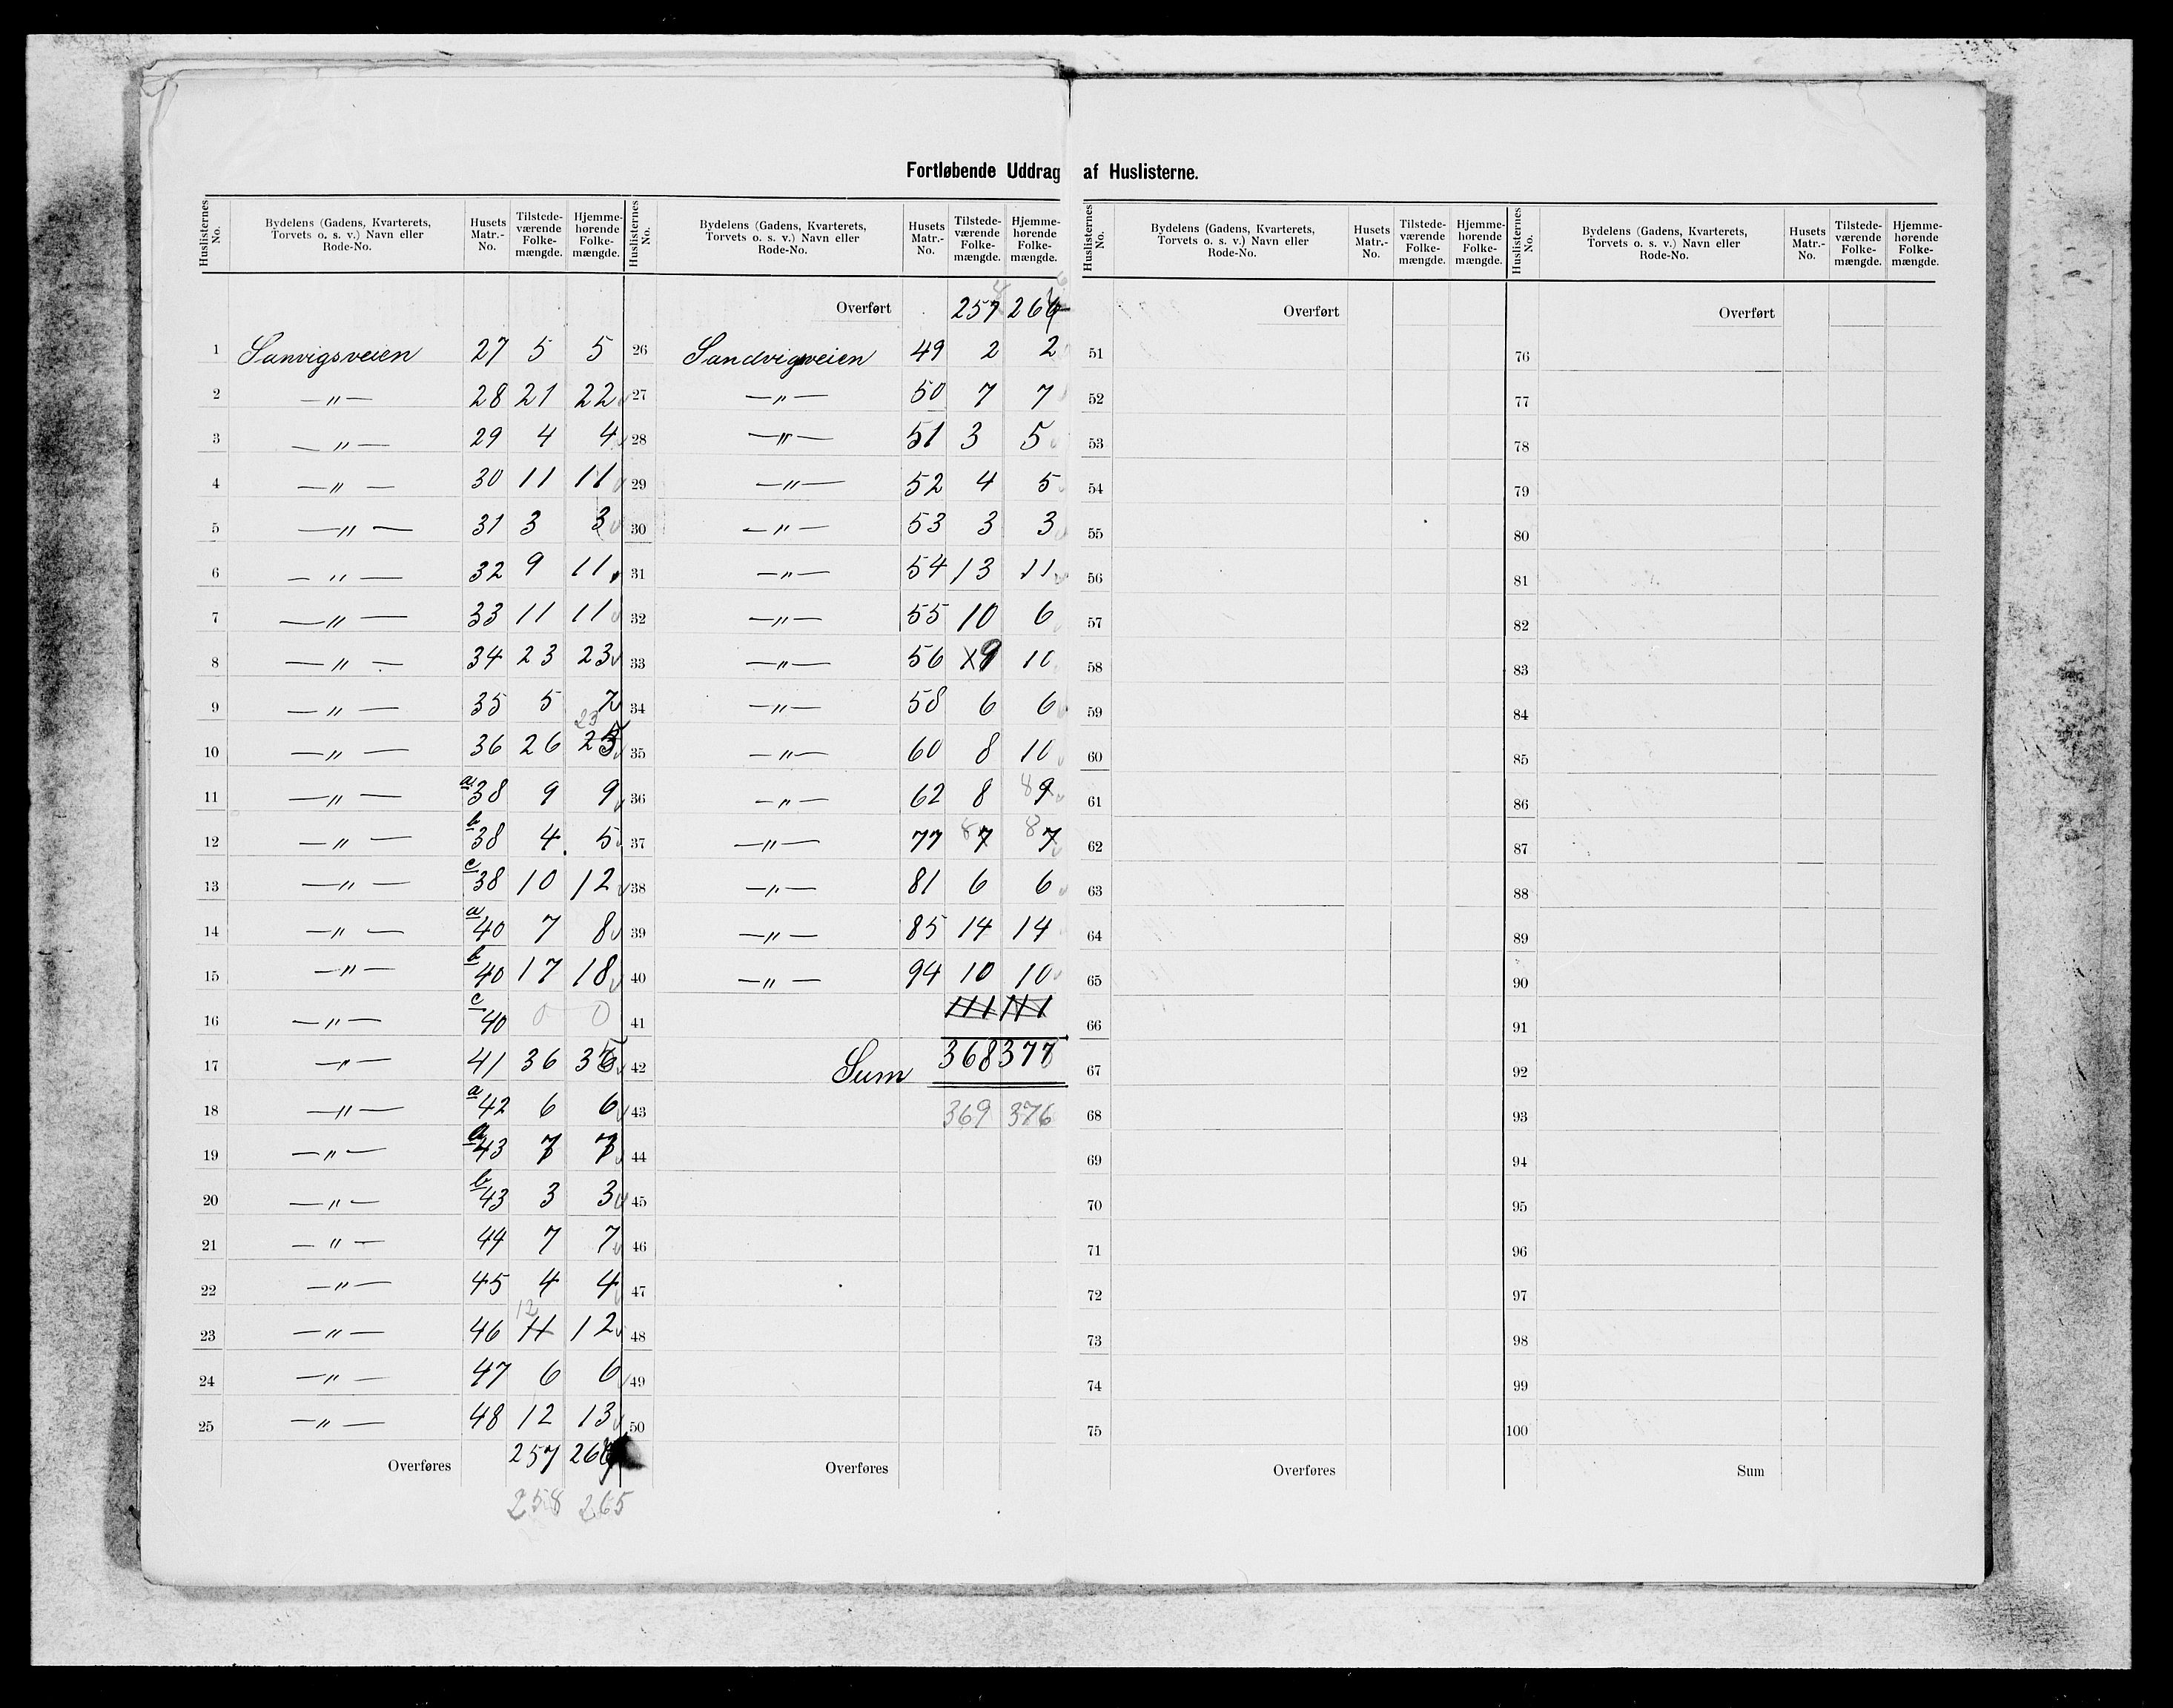 Fortløbende Uddrag af Huslisterne.
Huslisternes No. Bydelens (Gadens, Kvarterets, Torvets o. s. v.) Navn eller Rode-No. Husets Matr.-No. Tilstedeværende Folkemængde. Hjemmehørende Folkemængde.
1 Sanvigsveien 27 5 5
2 —〃— 28 21 22
3 —〃— 29 4 4
4 —〃— 30 11 11
5 —〃— 31 3 3
6 —〃— 32 9 11
7 —〃— 33 11 11
8 —〃— 34 23 23
9 —〃— 35 5 7
10 —〃— 36 26 23
11 —〃— 38a 9 9
12 —〃— 38b 4 5
13 —〃— 38c 10 12
14 —〃— 40a 7 8
15 —〃— 40b 17 18
16 —〃— 40c 0 0
17 —〃— 41 36
18 —〃— 42a 6 6
19 —〃— 43a 7 7
20 —〃— 43b 3 3
21 —〃— 44 7 7
22 —〃— 45 4 4
23 —〃— 46 11 12 12
24 —〃— 47 6 6
25 —〃— 48 12 13
Overføres 257
258 265
Huslisternes No. Bydelens (Gadens, Kvarterets, Torvets o. s. v.) Navn eller Rode-No. Husets Matr.-No. Tilstedeværende Folkemængde. Hjemmehørende Folkemængde.
Overført 257
26 Sandvigsveien 49 2 2
27 —〃— 50 7 7
28 —〃— 51 3 5
29 —〃— 52 4 5
30 —〃— 53 3 3
31 —〃— 54 13 11
32 —〃— 55 10 6
33 —〃— 56 9 10
34 —〃— 58 6 6
35 —〃— 60 8 10
36 —〃— 62 8 8 9
37 —〃— 77 8 7 8 7
38 —〃— 81 6 6
39 —〃— 85 14 14
40 —〃— 94 10 10
41 111 111
42 Sum 368 377
43 369 376
44
45
46
47
48
49
50
Overføres
Huslisternes No. Bydelens (Gadens, Kvarterets, Torvets o. s. v.) Navn eller Rode-No. Husets Matr.-No. Tilstedeværende Folkemængde. Hjemmehørende Folkemængde.
Overført
51
52
53
54
55
56
57
58
59
60
61
62
63
64
65
66
67
68
69
70
71
72
73
74
75
Overføres
Huslisternes No. Bydelens (Gadens, Kvarterets, Torvets o. s. v.) Navn eller Rode-No. Husets Matr.-No. Tilstedeværende Folkemængde. Hjemmehørende Folkemængde.
Overført
76
77
78
79
80
81
82
83
84
85
86
87
88
89
90
91
92
93
94
95
96
97
98
99
100
Sum